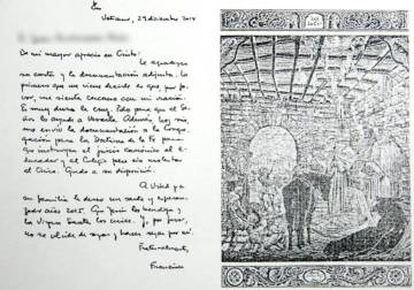 Vaticano, 29 diciembre 2014
De mi mayor aprecio en Cristo:
Le agradezco
su carta y la documentación adjunta. Lo
primero que me viene decirle es que, por favor,
me siente cercano con mi oración.
Es muy dura la cruz. Pido para que el Señor
los ayude a llevarla. Además, hoy mismo,
envío la documentación a la Congregación
para la Doctrina de la Fe para
que
el juicio canónico al
y el Colegio
el Chico. Quedo a su disposición.
A Usted y a
su familia le deseo un santo y
año 2015. Que Jesús los bendiga y
la Virgen Santa los cuide. Y, por favor,
no se olvide de rezar y hacer rezar por mí.
Fraternalmente,
Francisco